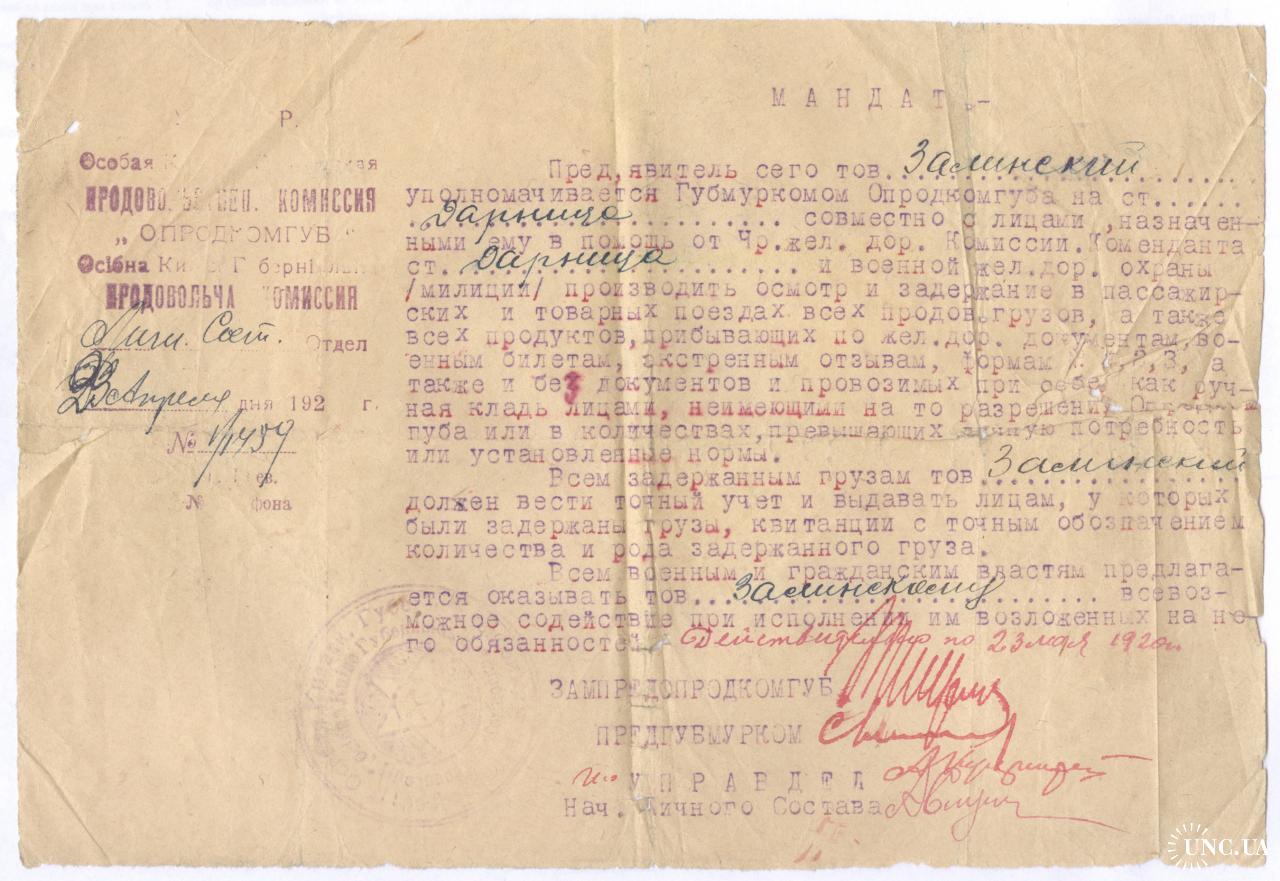 МАНДАТЪ.-
Р.
Особая К
ПРОДОВОЛЬСТВЕН. КОМИССИЯ
„ОПРОДКОМГУБ“
Осібна Київ. Г берні
ПРОДОВОЛЬЧА КОМИССИЯ
Личн. Сост. Отдел
23 Апреля дня 192 г.
№ 1/1459
ев.
№ фона
Пред,явитель сего тов. Залинский
уполномачивается Губмуркомом Опродкомгуба на ст......
Дарница............ совместно с лицами ,назначен-
ными ему в помощь от Чр.жел. дор. Комиссии.Коменданта
ст. Дарница........ и военной жел.дор. охраны
/милиции/ производить осмотр и задержание в пассажир-
ских и товарных поездах всех продов.грузов, а также
всех продуктов,прибывающих по жел.дор. документам,во-
енным билетам, экстренным отзывам, формам 1,2,3, а
также и без документов и провозимых при себе, как руч-
ная кладь лицами, неимеющими на то разрешения Опродком
губа или в количествах,превышающих личную потребность
или установленные нормы.
Всем задержанным грузам тов. Залинский
должен вести точный учет и выдавать лицам, у которых
были задержаны грузы, квитанции с точным обозначением
количества и рода задержанного груза.
Всем военным и гражданским властям предлага-
ется оказывать тов... Залинскому ........... всевоз-
можное содействие при исполнении им возложенных на не-
го обязанностей. Действителен по 23 мая 1920 г.
ЗАМПРЕДОПРОДКОМГУБ
ПРЕДГУБМУРКОМ
УПРАВДЕЛ
Нач. Личного Состава
UNC.UA